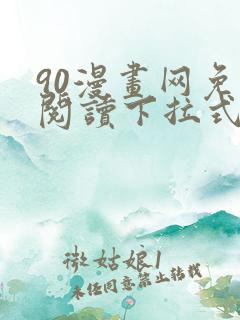 90漫畫网免
閱讀下拉式
微姑娘1
未经同意禁止转载